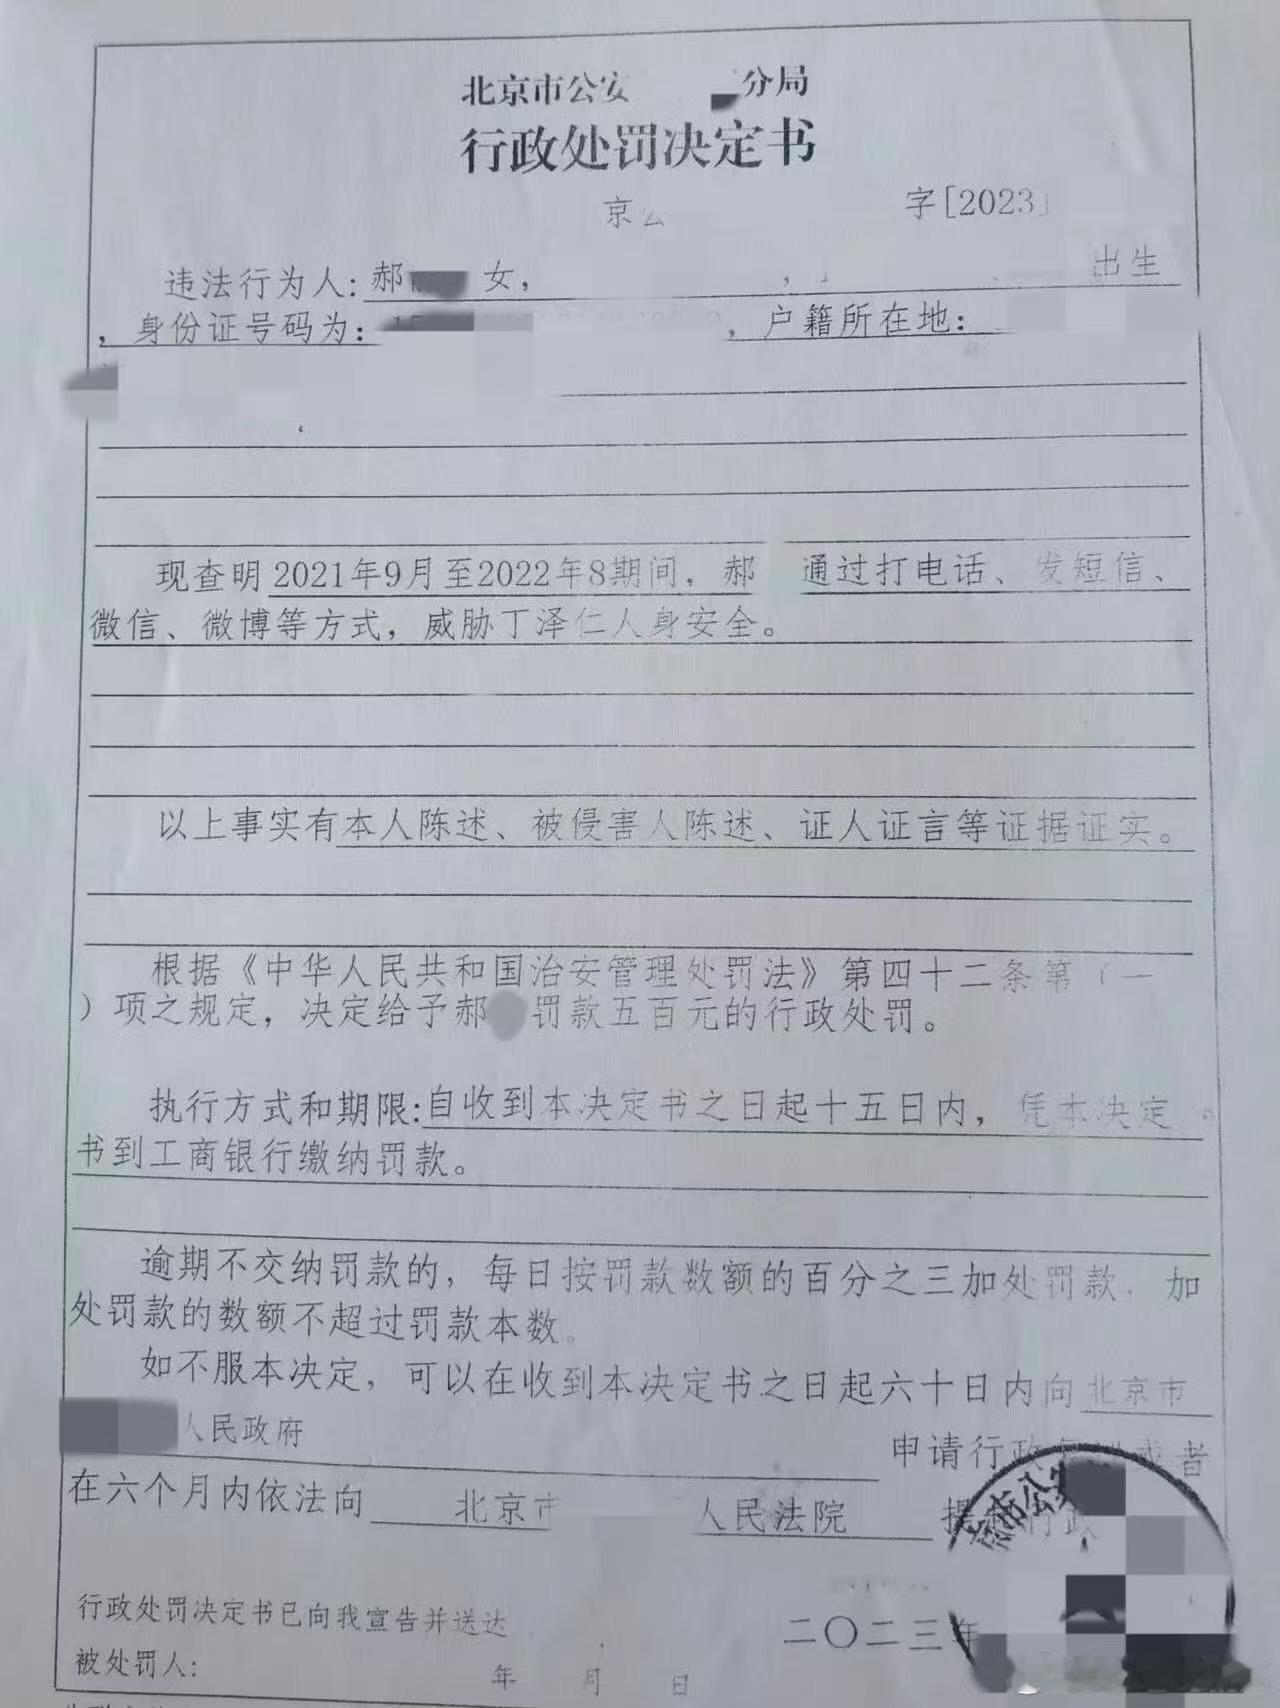 北京市公安 分局
行政处罚决定书
京公 字[2023]
违法行为人:郝 女, , 出生
，身份证号码为: ，户籍所在地:
现查明2021年9月至2022年8期间，郝 通过打电话、发短信、
微信、微博等方式，威胁丁泽仁人身安全。
以上事实有本人陈述、被侵害人陈述、证人证言等证据证实。
根据《中华人民共和国治安管理处罚法》第四十二条第（一
）项之规定，决定给予郝 罚款五百元的行政处罚。
执行方式和期限:自收到本决定书之日起十五日内，凭本决定
书到工商银行缴纳罚款。
逾期不交纳罚款的，每日按罚款数额的百分之三加处罚款，加
处罚款的数额不超过罚款本数。
如不服本决定，可以在收到本决定书之日起六十日内向北京市
人民政府
申请行政 或者
在六个月内依法向 北京市 人民法院 提 行政
京市公安
二〇二三年
行政处罚决定书已向我宣告并送达
被处罚人:
年 月 日